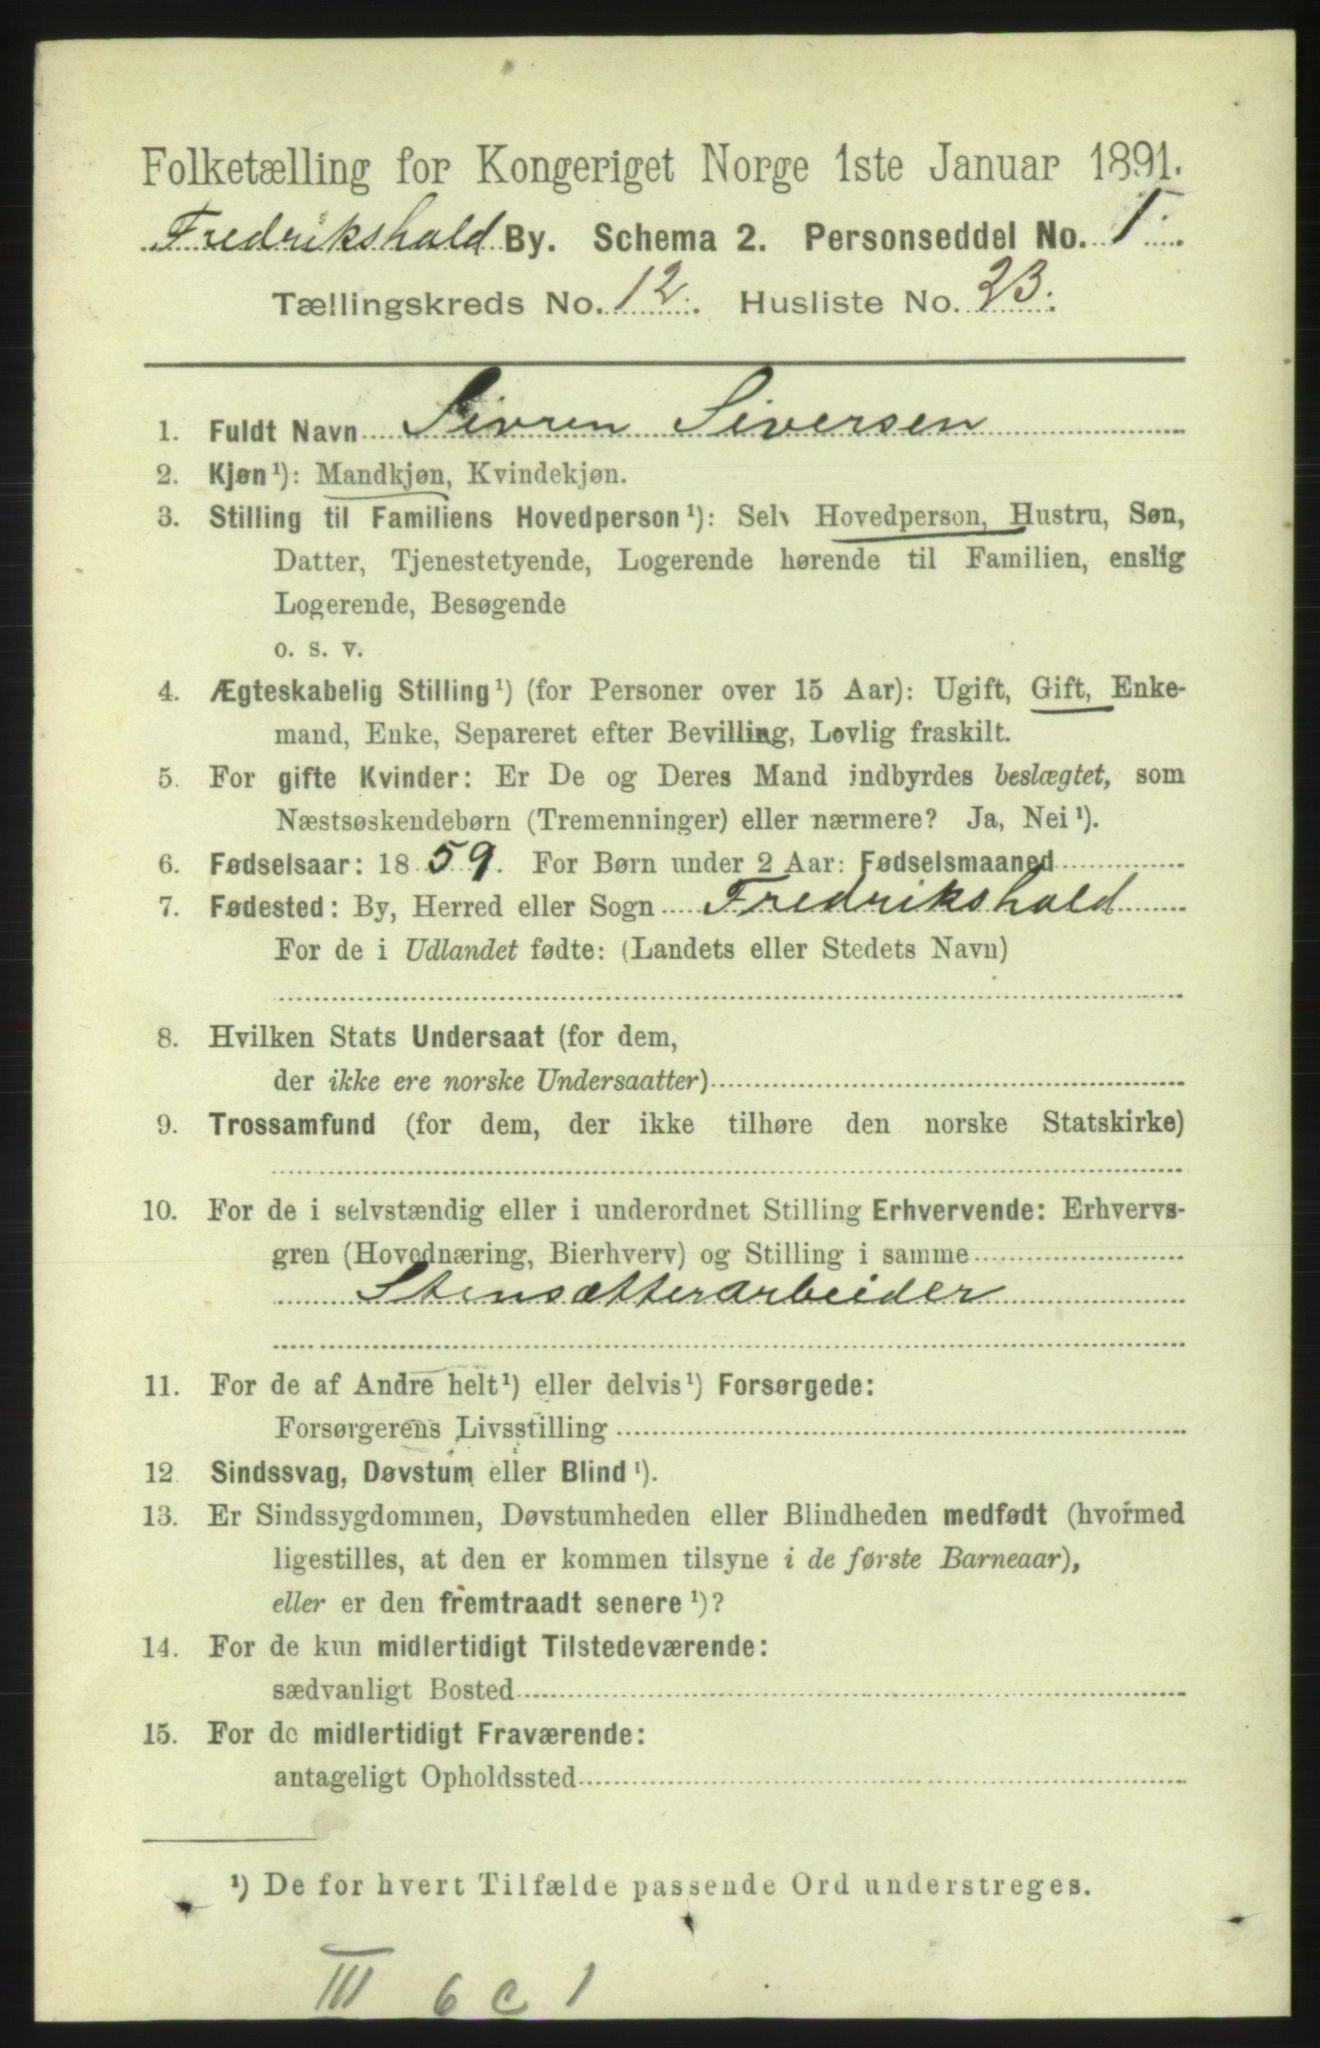 Folketælling for Kongeriget Norge 1ste Januar 1891.
Fredrikshald By. Schema 2. Personseddel No. 1.
Tællingskreds No. 12. Husliste No. 23.
1. Fuldt Navn Sivren Siversen
2. Kjøn¹): Mandkjøn, Kvindekjøn.
3. Stilling til Familiens Hovedperson¹): Selv Hovedperson, Hustru, Søn,
Datter, Tjenestetyende, Logerende hørende til Familien, enslig
Logerende, Besøgende
o. s. v.
4. Ægteskabelig Stilling¹) (for Personer over 15 Aar): Ugift, Gift, Enke-
mand, Enke, Separeret efter Bevilling, Lovlig fraskilt.
5. For gifte Kvinder: Er De og Deres Mand indbyrdes beslægtet, som
Næstsøskendebørn (Tremenninger) eller nærmere? Ja, Nei¹).
6. Fødselsaar: 1859. For Børn under 2 Aar: Fødselsmaaned
7. Fødested: By, Herred eller Sogn Fredrikshald
For de i Udlandet fødte: (Landets eller Stedets Navn)
8. Hvilken Stats Undersaat (for dem,
der ikke ere norske Undersaatter)
9. Trossamfund (for dem, der ikke tilhøre den norske Statskirke)
10. For de i selvstændig eller i underordnet Stilling Erhvervende: Erhvervs-
gren (Hovednæring, Bierhverv) og Stilling i samme
Stensætterarbeider
11. For de af Andre helt¹) eller delvis¹) Forsørgede:
Forsørgerens Livsstilling
12. Sindssvag, Døvstum eller Blind¹).
13. Er Sindssygdommen, Døvstumheden eller Blindheden medfødt (hvormed
ligestilles, at den er kommen tilsyne i de første Barneaar),
eller er den fremtraadt senere¹)?
14. For de kun midlertidigt Tilstedeværende:
sædvanligt Bosted
15. For de midlertidigt Fraværende:
antageligt Opholdssted
¹) De for hvert Tilfælde passende Ord understreges.
III 6 c 1